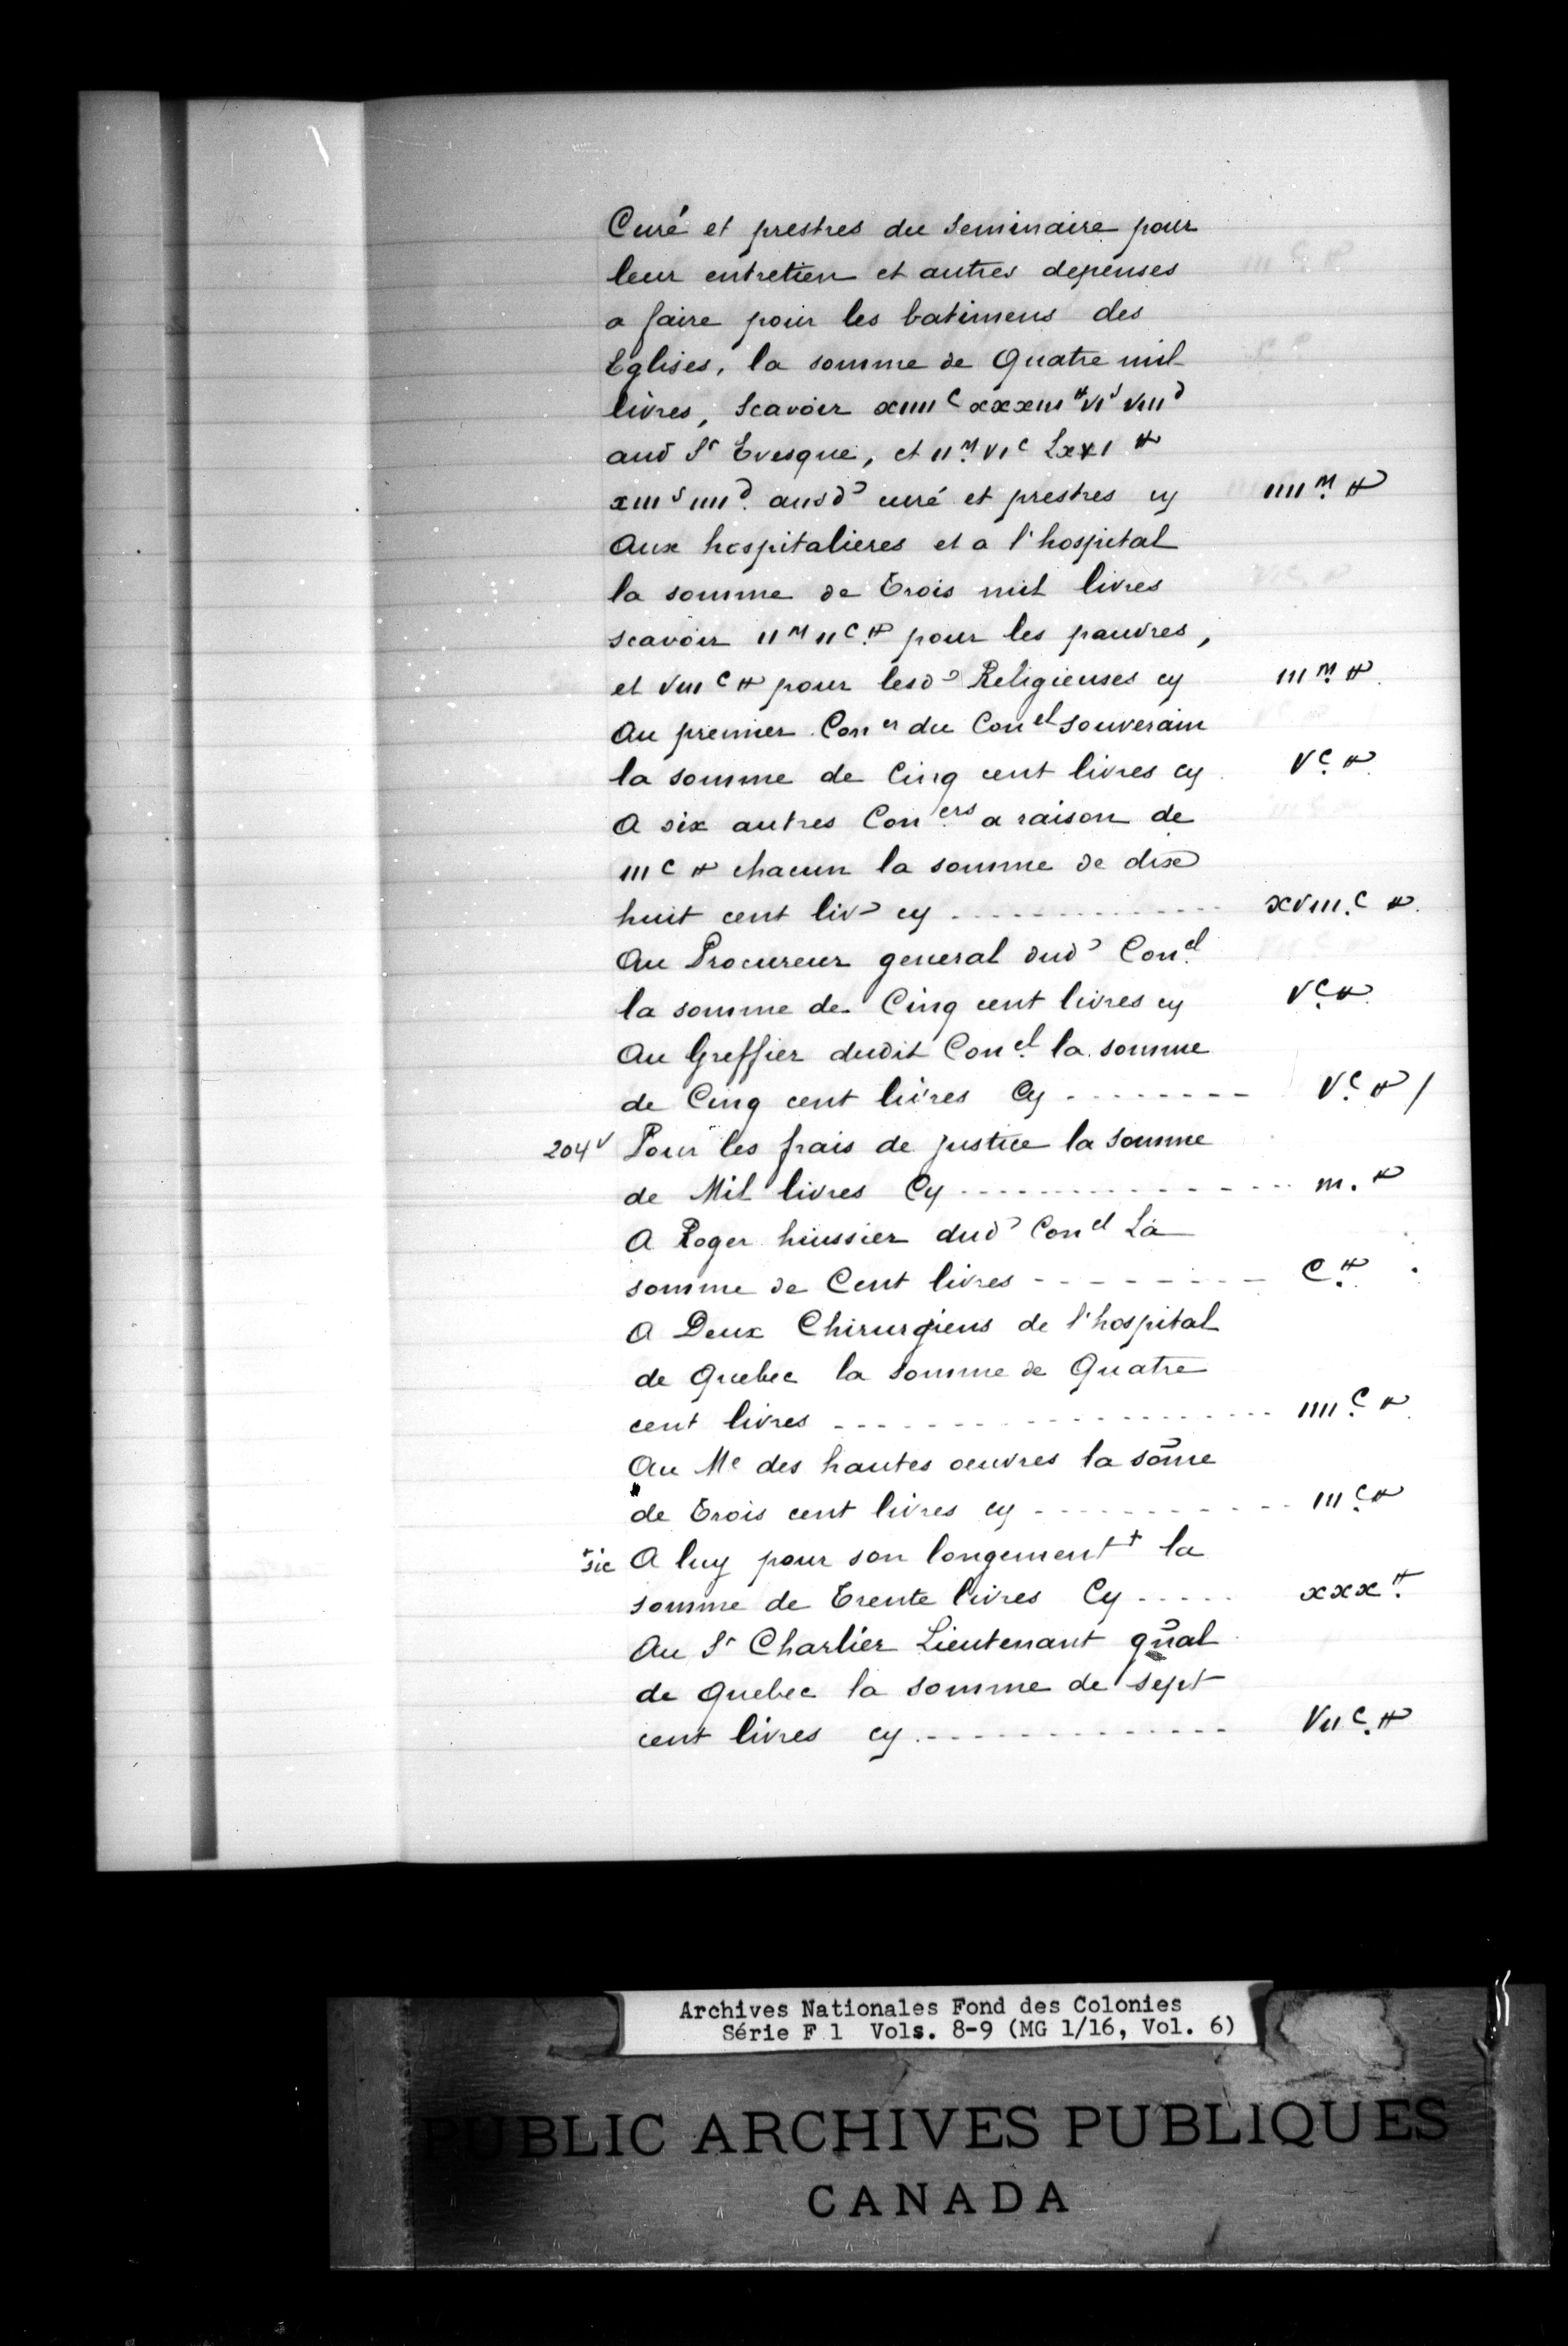 Curé et prestres du Seminaire pour
leur entretien et autres depenses
a faire pour les batimens des
Eglises, la somme de Quatre mil
livres, Scavoir xiiii c xxxiii ₶ vi s viii d
aud Sr Evesque, et ii m vi c Lxxi ₶
xiii s iiii d ausd curé et prestres cy iiii m ₶
Aux hospitalieres et a l'hospital
la somme de Trois mil livres
scavoir ii m ii c ₶ pour les pauvres,
et viii c ₶ pour lesd Religieuses cy iii m ₶
Au premier Coner du Conel souverain
la somme de Cinq cent livres cy v c ₶
A six autres Coners a raison de
iii c ₶ chacun la somme de dix
huit cent liv cy ............. xviii c ₶
Au Procureur general dud Conel
la somme de Cinq cent livres cy v c ₶
Au Greffier dudit Conel la somme
de Cinq cent livres Cy -------- v c ₶ /
204v Pour les frais de justice la somme
de Mil livres Cy -------------- m. ₶
A Roger huissier dud Conel La
somme de Cent livres --------- C ₶
A Deux Chirurgiens de l'hospital
de Quebec la Somme de Quatre
cent livres ------------------- iiii c ₶
Au Me des hautes oeuvres la sōme
de Trois cent livres cy ----------- iii c ₶
+sic A luy pour son longement+ la
somme de Trente livres Cy ----- xxx ₶
Au Sr Chartier Lieutenant gn̄al
de Quebec la somme de sept
cent livres cy ------------- vii c ₶
Archives Nationales Fond des Colonies
Série F 1 Vols. 8-9 (MG 1/16, Vol. 6)
PUBLIC ARCHIVES PUBLIQUES
CANADA